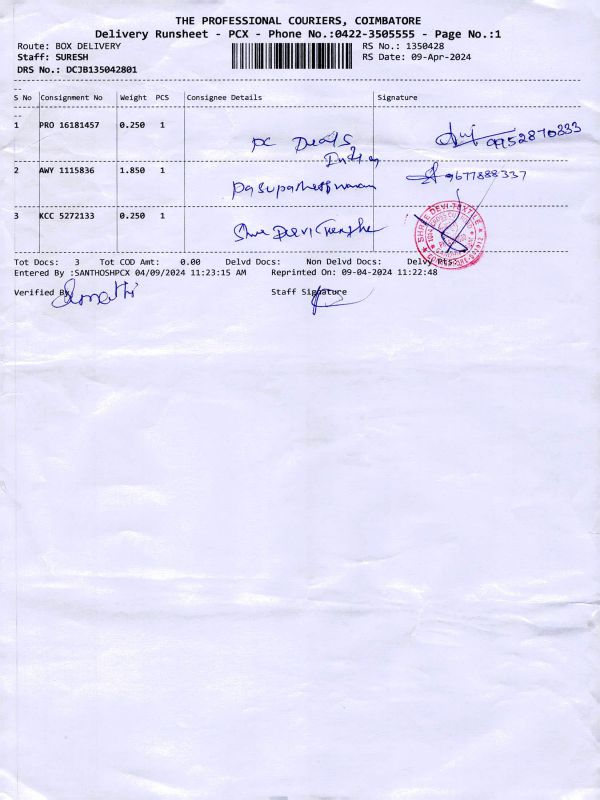 THE PROFESSIONAL COURIERS, COIMBATORE
Delivery Runsheet - PCX - Phone No.:0422-3505555 - Page No.:1
Route: BOX DELIVERY RS No.: 1350428
Staff: SURESH RS Date: 09-Apr-2024
DRS No.: DCJB135042801
S No Consignment No Weight PCS Consignee Details Signature
1 PRO 16181457 0.250 1 PC Deals 9952870333
2 AWY 1115836 1.850 1 9677888337
3 KCC 5272133 0.250 1 Shree Devi
SHREE DEVI TEXTILE
Tot Docs: 3 Tot COD Amt: 0.00 Delvd Docs: Non Delvd Docs: Delvy Pts:
Entered By :SANTHOSHPCX 04/09/2024 11:23:15 AM Reprinted On: 09-04-2024 11:22:48
Verified By Staff Signature